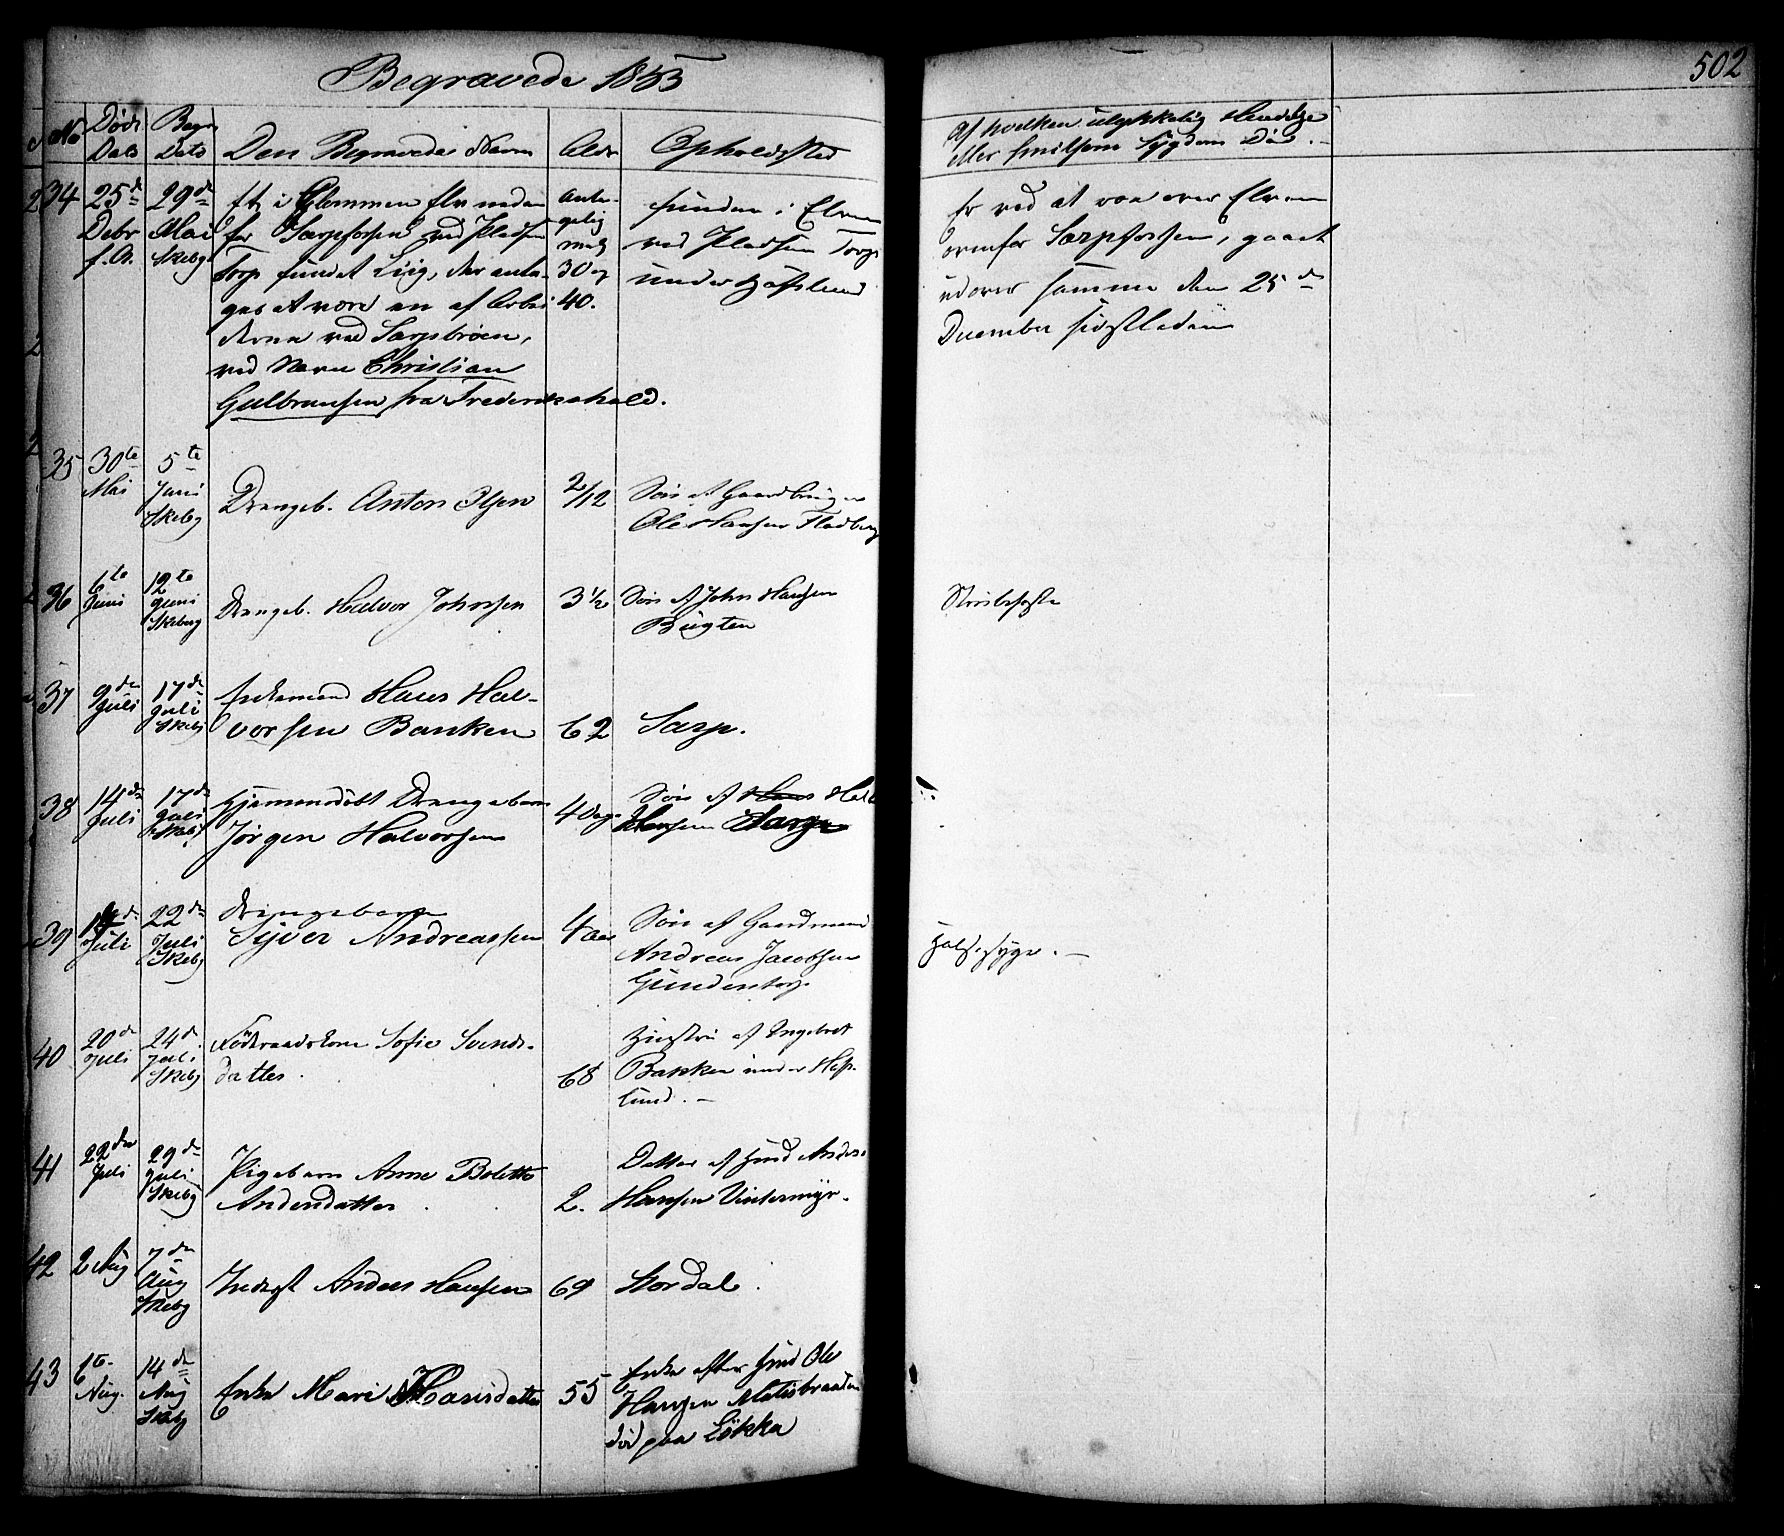 Begravede 1853
502
No
Døds Dato
Begr. Dato
Den Begravedes Navn
Alder
Opholdssted
Af hvilken ulykkelig Hændelse
eller smitsom Sygdom Død. -
34
25de
Debr
f. A.
29de
Mai
Skebg
Et i Glommen Elv neden
for Sarpfossen ved Pladsen
Torp fundet Liig, der anta-
ges at være en af Arbei
derne ved Sarpsbroen,
ved Navn Christian
Gulbransen fra Frederikshald.
Anta-
gelig
mell
30 og
40.
funden i Elven
ved Pladsen Torp
under Hafslund
Er ved at roe over Elven
ovenfor Sarpfossen, gaaet
udover samme den 25de
December sidstleden
35
30te
Mai
5te
Juni
Skebg
Drengeb. Anton Olsen
2/12
Søn af Gaardbruger
Ole Hansen Fladberg
36
6te
Juni
12te
Juni
Skeberg
Drengeb. Halvor Johnsen
3 1/2
Søn af John Hansen
Bugten
Strubehoste
37
9de
Juli
17de
Juli
Skebg
Enkemand Hans Hal-
vorsen Banken
62
Sarp.
38
14de
Juli
17de
Juli
Skebg
Hjemmedøbt Drengebarn
Jørgen Halvorsen
4 Dage
Søn af Hans
Hansen Sarp
39
Juli
22de
Juli
Skebg
Drengebarn
Syver Andreassen
4 Aar
Søn af Gaardmand
Andreas Jacobsen
Gundestorp
Halssyge. -
40
20de
Juli
24de
Juli
Skebg
Føderaadskone Sofie Svends-
datter.
68
Hustru af Ingebret
Bakken under Haf-
lund. -
41
22de
Juli
29de
Juli
Skebg
Pigebarn Anne Bolette
Andersdatter
2.
Datter af Husmd Anders
Hansen Vintermyr.
42
2 Aug
7de
Aug
Skebg
Inderst Anders Hansen
69
Stordal.
43
6te
Aug.
14de
Aug
Skebg
Enke Mari Hansdatter
55
Enke efter Husmd Ole
Hansen
død paa Løkka